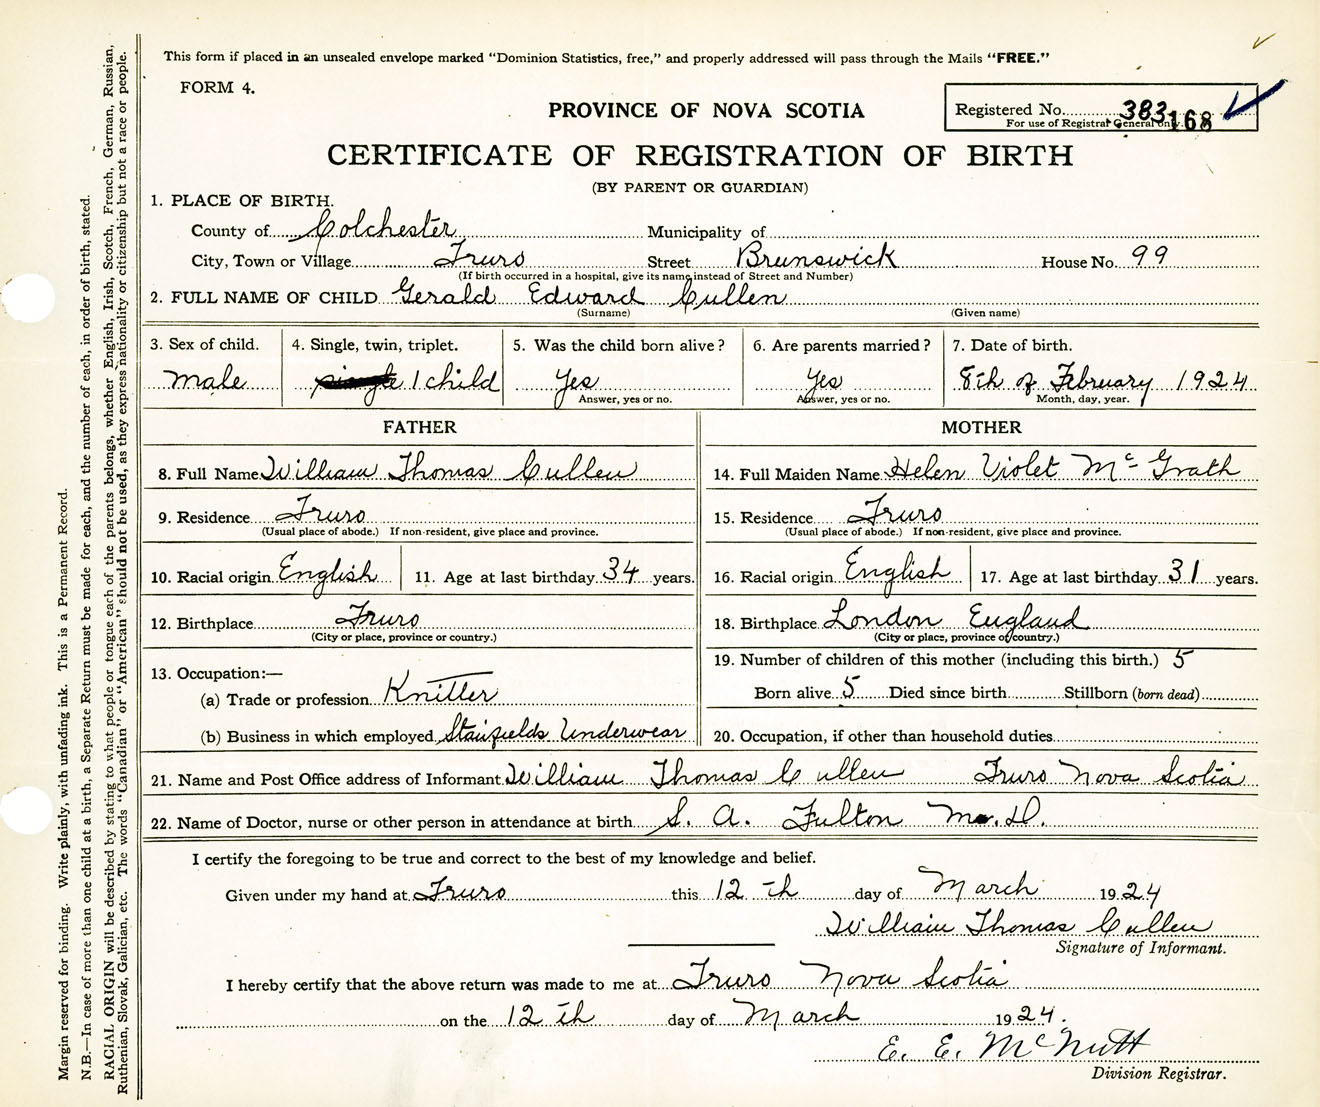 This form if placed in an unsealed envelope marked "Dominion Statistics, free," and properly addressed will pass through the Mails "FREE."
FORM 4.
PROVINCE OF NOVA SCOTIA
Registered No. 383 168
For use of Registrar General only.
CERTIFICATE OF REGISTRATION OF BIRTH
(BY PARENT OR GUARDIAN)
1. PLACE OF BIRTH.
County of Colchester Municipality of
City, Town or Village Truro Street Brunswick House No. 99
(If birth occurred in a hospital, give its name instead of Street and Number)
2. FULL NAME OF CHILD Gerald Edward Cullen
(Surname) (Given name)
3. Sex of child. 4. Single, twin, triplet. 5. Was the child born alive? 6. Are parents married? 7. Date of birth.
male single 1 child Yes Yes 8th of February 1924
Answer, yes or no. Answer, yes or no. Month, day, year.
FATHER MOTHER
8. Full Name William Thomas Cullen 14. Full Maiden Name Helen Violet McGrath
9. Residence Truro 15. Residence Truro
(Usual place of abode.) If non-resident, give place and province. (Usual place of abode.) If non-resident, give place and province.
10. Racial origin English 11. Age at last birthday 34 years. 16. Racial origin English 17. Age at last birthday 31 years.
12. Birthplace Truro 18. Birthplace London England
(City or place, province or country.) (City or place, province or country.)
13. Occupation:— 19. Number of children of this mother (including this birth.) 5
(a) Trade or profession Knitter Born alive 5 Died since birth Stillborn (born dead)
(b) Business in which employed Stanfields Underwear 20. Occupation, if other than household duties
21. Name and Post Office address of Informant William Thomas Cullen Truro Nova Scotia
22. Name of Doctor, nurse or other person in attendance at birth S. A. Fulton M.D.
I certify the foregoing to be true and correct to the best of my knowledge and belief.
Given under my hand at Truro this 12th day of March 1924
William Thomas Cullen
Signature of Informant.
I hereby certify that the above return was made to me at Truro Nova Scotia
on the 12th day of March 1924.
E. E. McNutt
Division Registrar.
Margin reserved for binding. Write plainly, with unfading ink. This is a Permanent Record.
N.B.—In case of more than one child at a birth, a Separate Return must be made for each, and the number of each, in order of birth, stated.
RACIAL ORIGIN will be described by stating to what people or tongue each of the parents belongs, whether English, Irish, Scotch, French, German, Russian,
Ruthenian, Slovak, Galician, etc. The words "Canadian" or "American" should not be used, as they express nationality or citizenship but not a race or people.